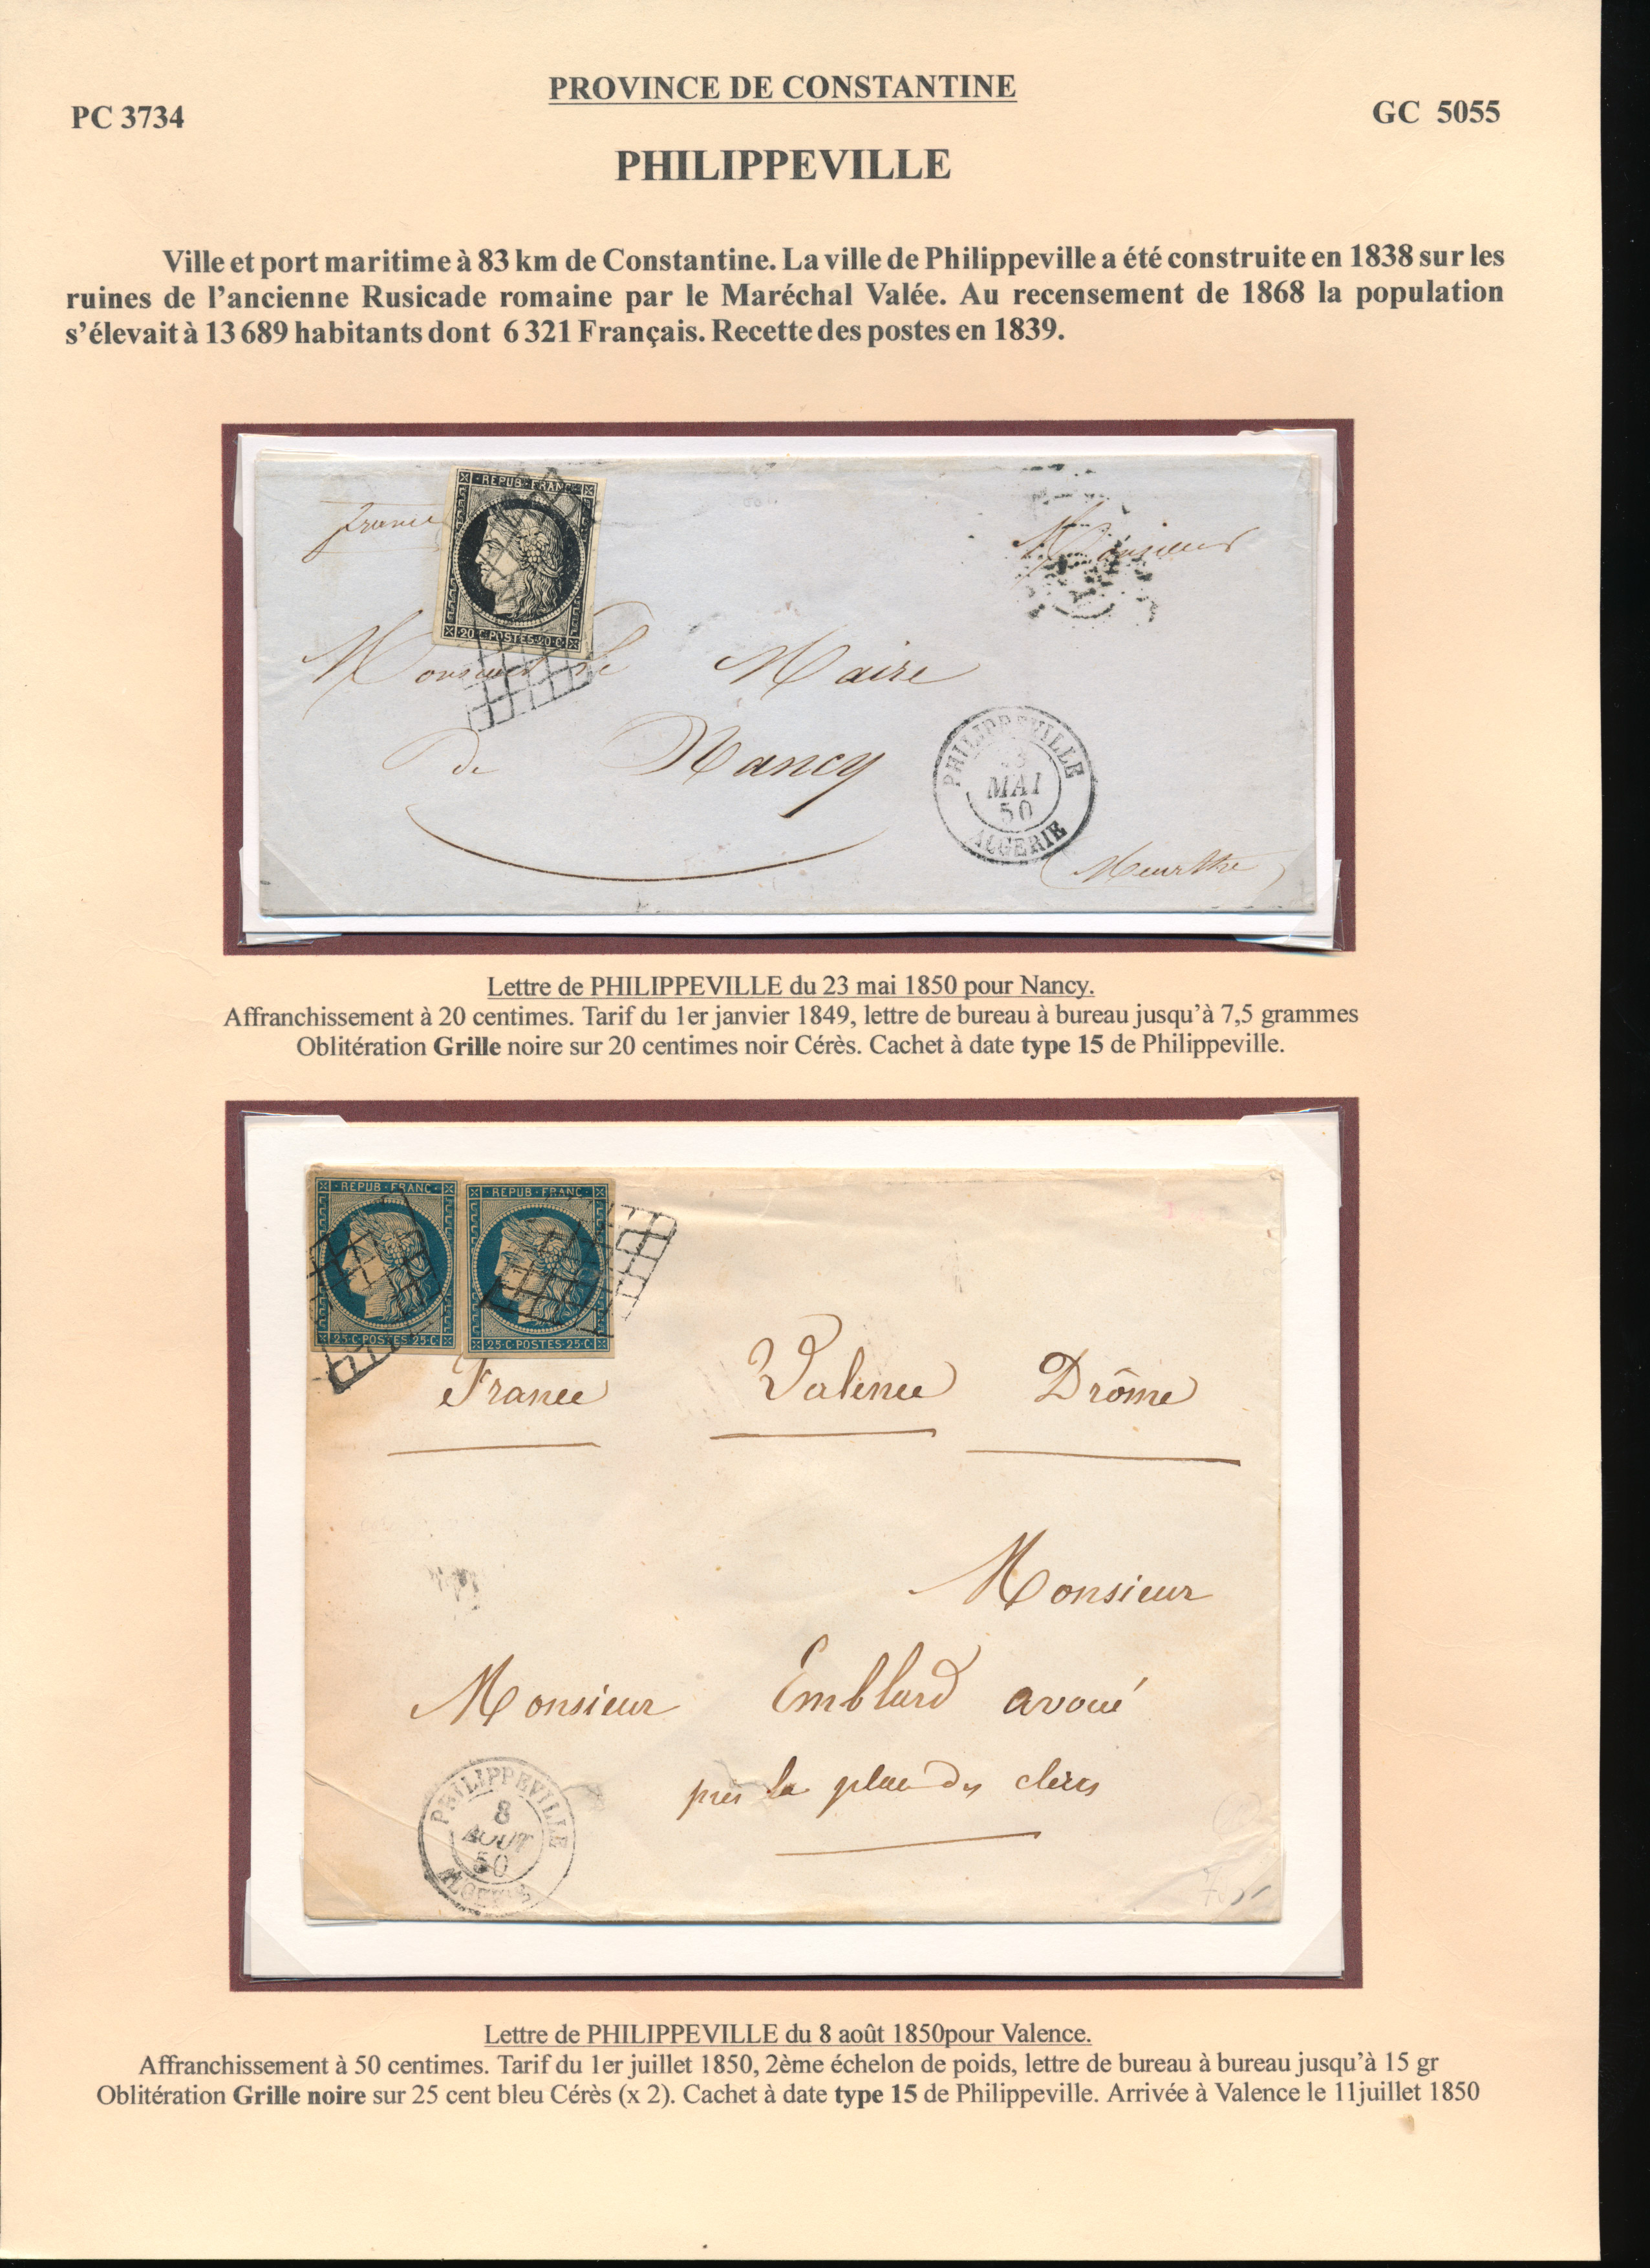 PROVINCE DE CONSTANTINE
PC 3734
GC 5055
PHILIPPEVILLE
Ville et port maritime à 83 km de Constantine. La ville de Philippeville a été construite en 1838 sur les
ruines de l'ancienne Rusicade romaine par le Maréchal Valée. Au recensement de 1868 la population
s'élevait à 13 689 habitants dont 6 321 Français. Recette des postes en 1839.
REPUB FRANC
20 C POSTES 20 C
france
Monsieur
Monsieur le Maire
de Nancy
PHILIPPEVILLE
MAI
50
ALGERIE
Meurthe
Lettre de PHILIPPEVILLE du 23 mai 1850 pour Nancy.
Affranchissement à 20 centimes. Tarif du 1er janvier 1849, lettre de bureau à bureau jusqu'à 7,5 grammes
Oblitération Grille noire sur 20 centimes noir Cérès. Cachet à date type 15 de Philippeville.
REPUB FRANC
25 C POSTES 25 C
REPUB FRANC
25 C POSTES 25 C
France Valence Drôme
Monsieur
Monsieur Emblard avoué
près la place des clercs
PHILIPPEVILLE
8
AOUT
50
ALGERIE
Lettre de PHILIPPEVILLE du 8 août 1850pour Valence.
Affranchissement à 50 centimes. Tarif du 1er juillet 1850, 2ème échelon de poids, lettre de bureau à bureau jusqu'à 15 gr
Oblitération Grille noire sur 25 cent bleu Cérès (x 2). Cachet à date type 15 de Philippeville. Arrivée à Valence le 11juillet 1850